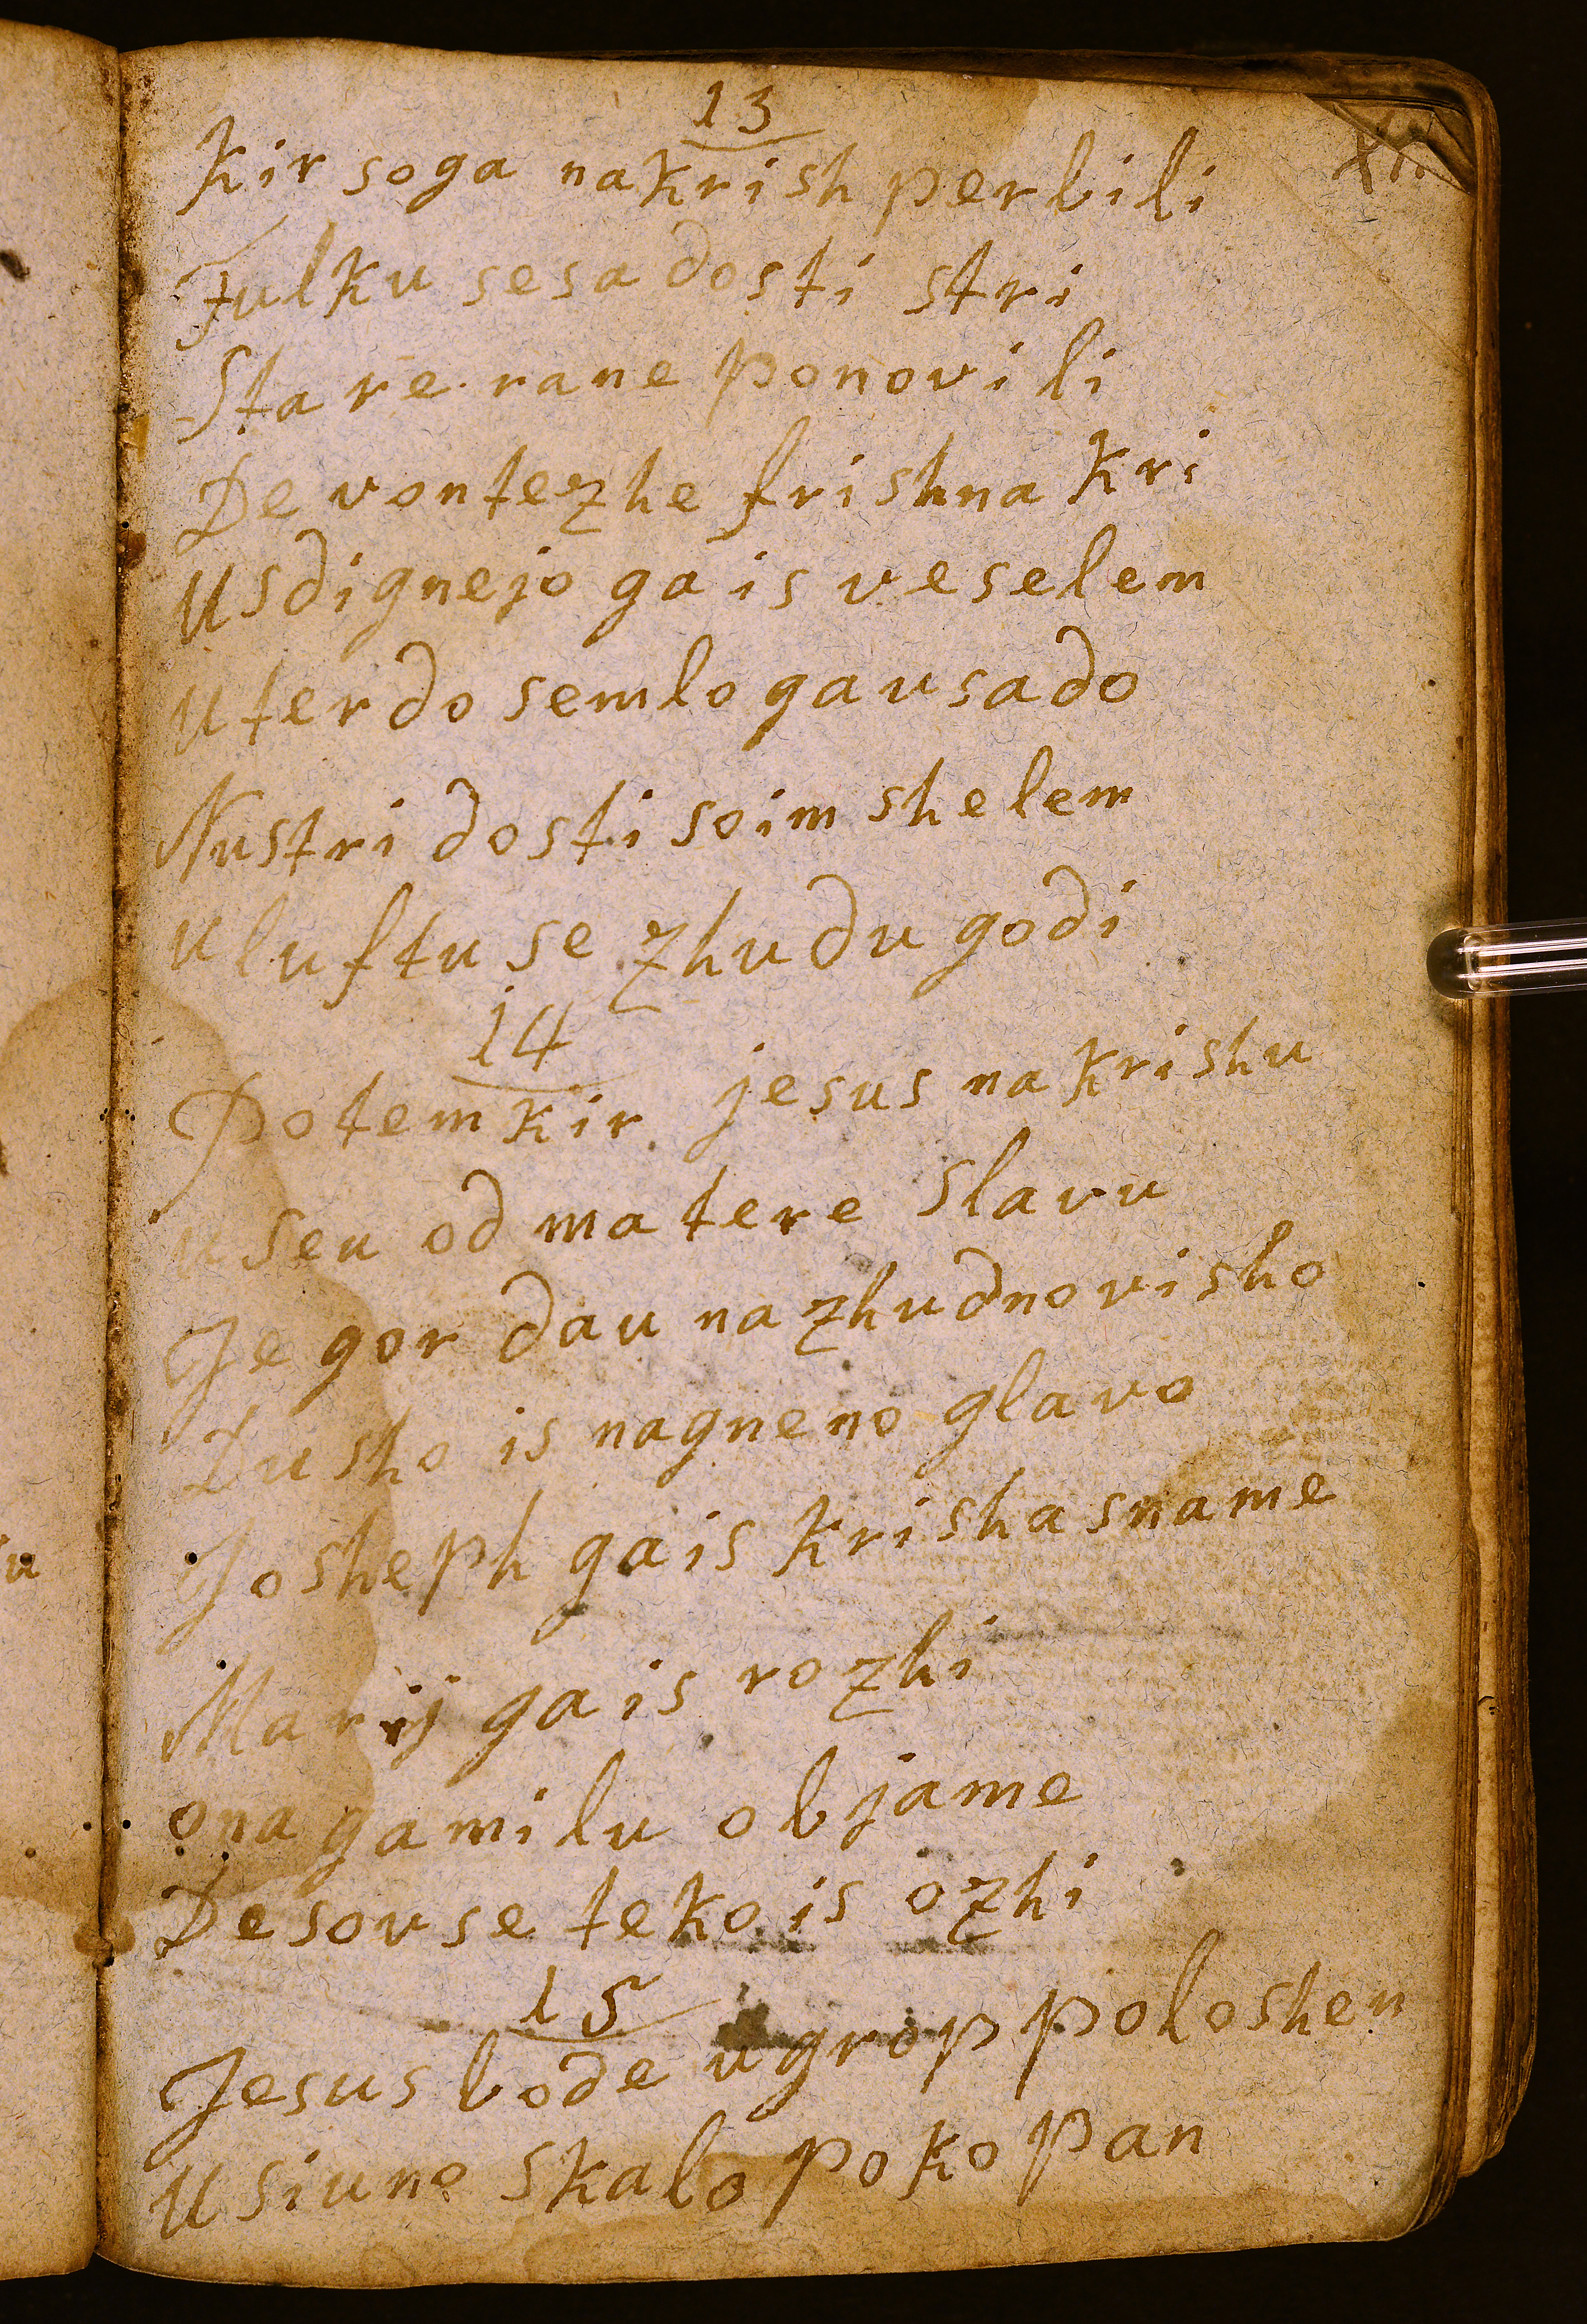 13
Kir soga nakrish perbili
Tulku sesa dosti stri
Stare rane ponovili
De vontezhe frishna kri
Usdignejo ga is veselem
Uterdo semlo gausado
Nustri dosti soim shelem
Uluftu se zhudu godi
14
Potem kir jesus na krishu
Useu od matere slavu
Je gor dau na zhudno visho
Dusho is nagneno glavo
Josheph ga is krisha sname
Marij ga is rozhi
ona gamilu objame
De souse teko is ozhi
15
Jesus bode ugrop poloshen
U siuno skalo pokopan